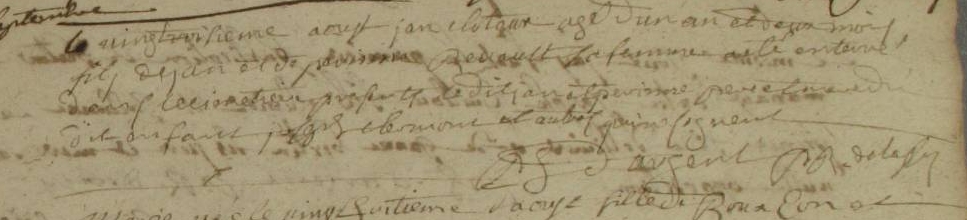 septembre
le vingtroisieme aoust jan agé d'un an et deux mois
fils de jan et de perinne sa femme a esté enterré
dans le cimetiere presents ledit jan et perinne pere et mere du
dit enfant clemont et autres qui ne signent
d'argent
le vingt huitieme d'aoust fille de et